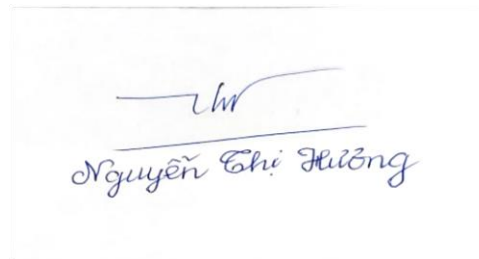 Nguyễn Thị Hưởng